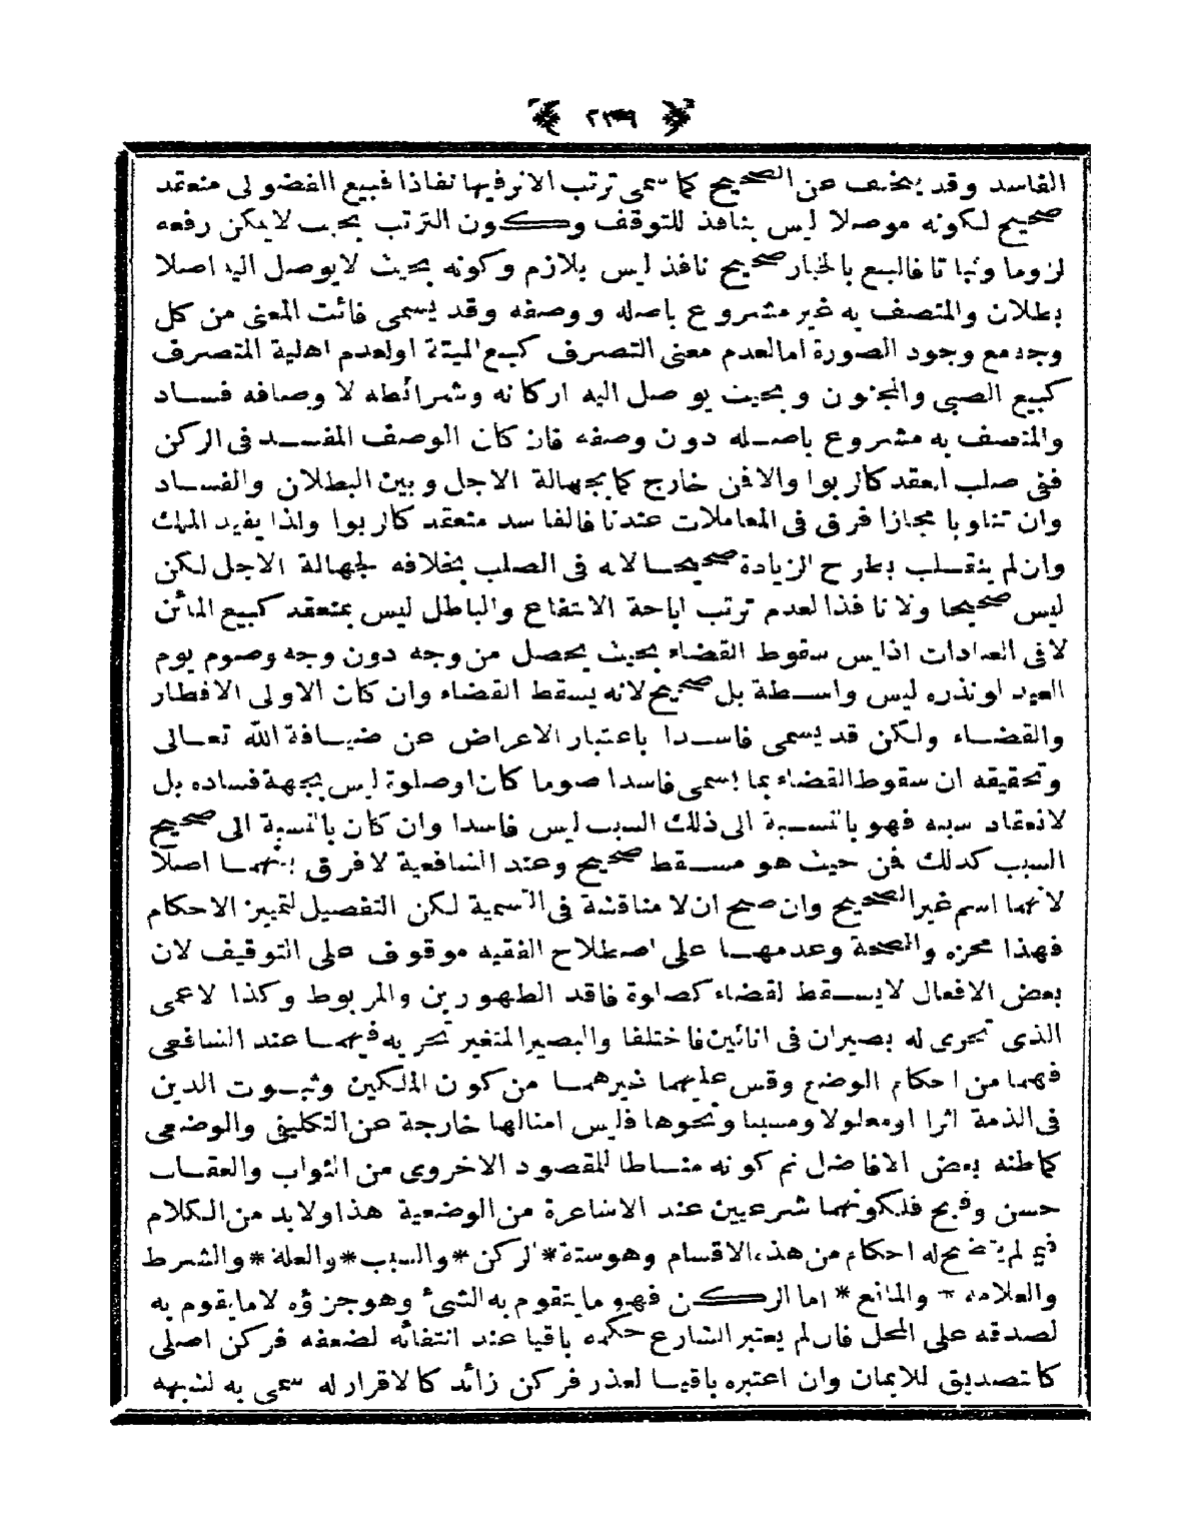 ﴿ ٢٣٩ ﴾
الفاسد وقد يتخلف عن الصحيح كما سمى ترتب الاثر فيها نفاذا فبيع الفضولى منعقد
صحيح لكونه موصلا ليس بنافذ للتوقف وكون الترتب بحيث لا يمكن رفعه
لزوما وثباتا فالبيع بالخيار صحيح نافذ ليس بلازم وكونه بحيث لا يوصل اليه اصلا
بطلان والمتصف به غير مشروع باصله ووصفه وقد يسمى فائت المعنى من كل
وجه مع وجود الصورة اما لعدم معنى التصرف كبيع الميتة او لعدم اهلية المتصرف
كبيع الصبى والمجنون وبحيث يوصل اليه اركانه وشرائطه لا وصافه فساد
والمتصف به مشروع باصله دون وصفه فان كان الوصف المفسد فى الركن
ففى صلب العقد كالربوا والا فمن خارج كما بجهالة الاجل وبين البطلان والفساد
وان تناوبا مجازا فرق فى المعاملات عندنا فالفاسد منعقد كالربوا ولذا يفيد الملك
وان لم ينقلب بطرح الزيادة صحيحا لانه فى الصلب بخلافه لجهالة الاجل لكن
ليس صحيحا ولا نافذا لعدم ترتب اباحة الانتفاع والباطل ليس بمنعقد كبيع
لا فى العبادات اذ ليس سقوط القضاء بحيث يحصل من وجه دون وجه وصوم يوم
العيد او نذره ليس واسطة بل صحيح لانه يسقط القضاء وان كان الاولى الافطار
والقضاء ولكن قد يسمى فاسدا باعتبار الاعراض عن ضيافة الله تعالى
وتحقيقه ان سقوط القضاء بما يسمى فاسدا صوما كان او صلوة ليس بجهة فساده بل
لانعقاد سببه فهو بالنسبة الى ذلك السبب ليس فاسدا وان كان بالنسبة الى صحيح
السبب كذلك فمن حيث هو مسقط صحيح وعند الشافعية لا فرق بينهما اصلا
لانهما اسم غير الصحيح وان صح ان لا مناقشة فى التسمية لكن التفصيل لتمييز الاحكام
فهذا محزه والصحة وعدمها على اصطلاح الفقيه موقوف على التوقيف لان
بعض الافعال لا يسقط لقضاء كصلوة فاقد الطهورين والمربوط وكذا لاعمى
الذى تحرى له بصيران فى انائين فاختلفا والبصير المتغير تحريه فيهما عند الشافعى
فهما من احكام الوضع وقس عليهما غيرهما من كون الملكين وثبوت الدين
فى الذمة اثرا او معلولا ومسببا ونحوها فليس امثالها خارجة عن التكليفى والوضعى
كما ظنه بعض الافاضل ثم كونه مناطا للمقصود الاخروى من الثواب والعقاب
حسن وقبح فلكونهما شرعيين عند الاشاعرة من الوضعية هذا ولابد من الكلام
فيما لم يتضح له احكام من هذه الاقسام وهو ستة * الركن * والسبب * والعلة * والشرط
والعلامة * والمانع * اما الركن فهو ما يتقوم به الشئ وهو جزؤه لا ما يقوم به
لصدقه على المحل فان لم يعتبر الشارع حكمه باقيا عند انتفائه لضعفه فركن اصلى
كا تصديق للايمان وان اعتبره باقيا لعذر فركن زائد كالاقرار له سمى به لشبهه